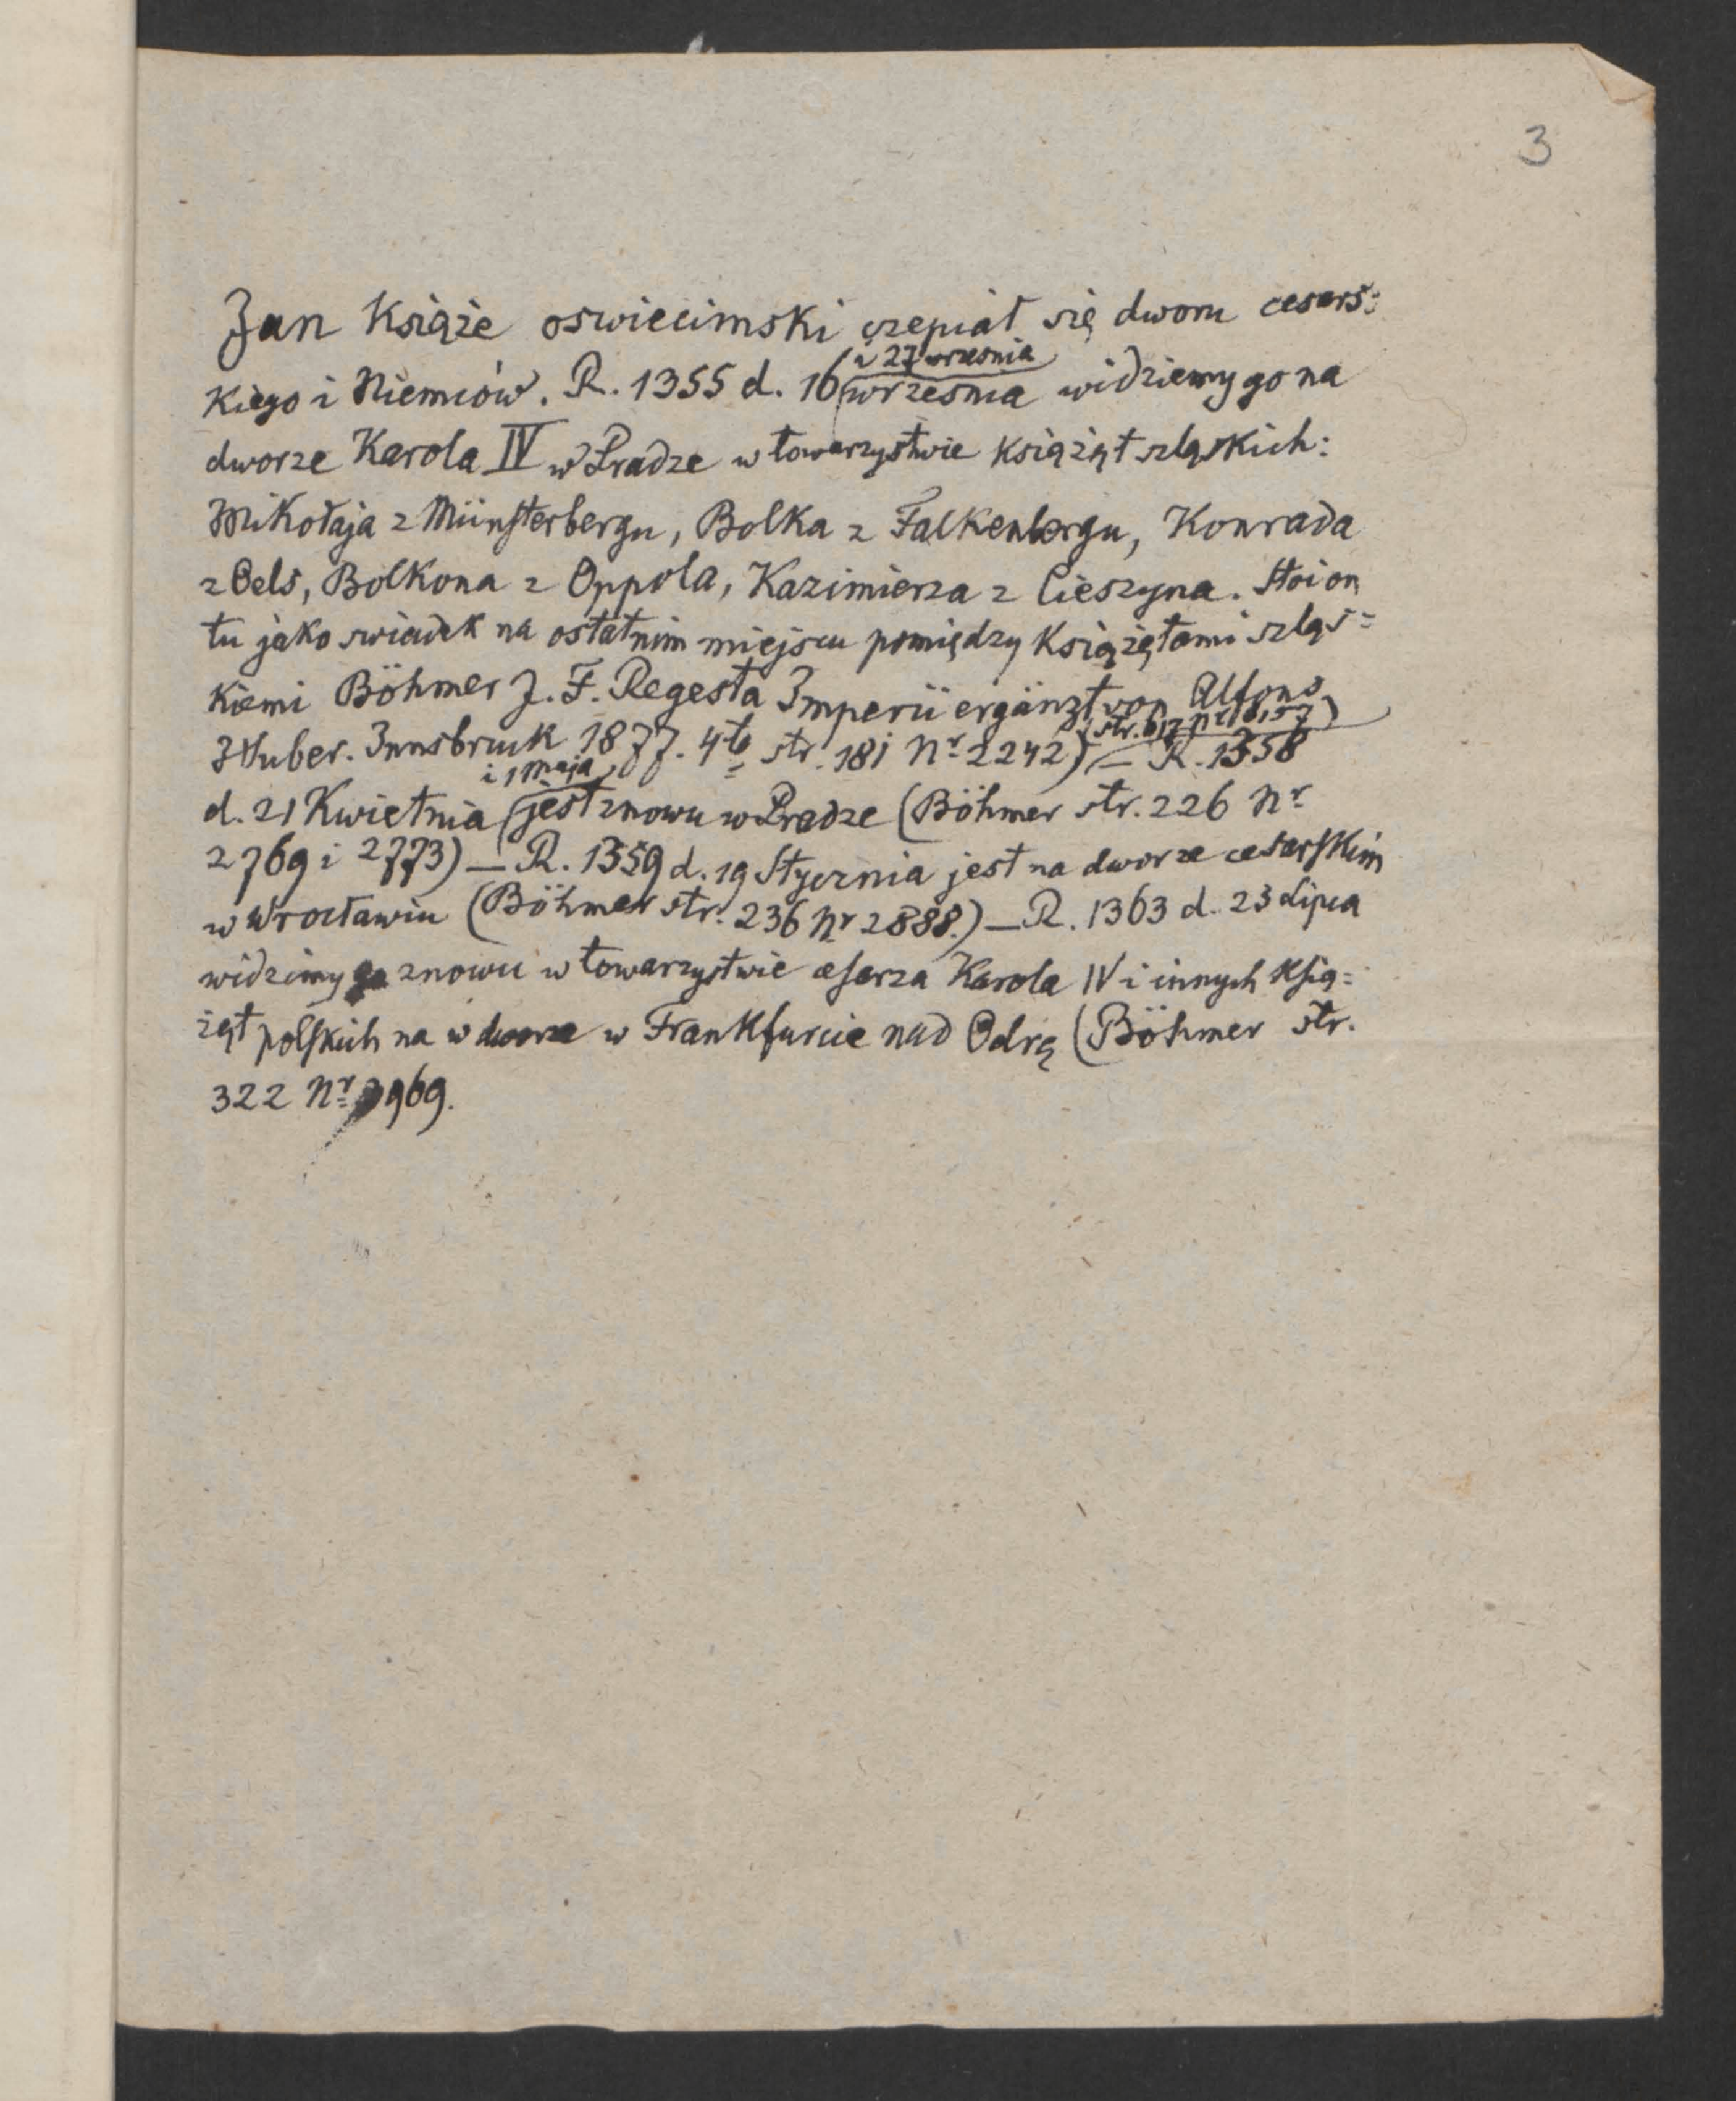 3
Jan Książe oswiecimski czepiał się dworu cesars=
kiego i Niemców. R. 1355 d. 16 września widziemy go na
i 27 wrzesnia
dworze Karola IV w Pradze w towarzystwie książąt szląskich:
Mikołaja z Münsterbergu, Bolka z Falkenbergu, Konrada
z Oels, Bolkona z Oppola, Kazimierza z Cieszyna. Stoi on
tu jako swiadek na ostatnim miejscu pomiędzy książętami szląs=
kiemi Böhmer J. F. Regesta Imperii ergänzt von Alfons
Huber. Innsbruck 1877. 4to str. 181 Nr 2242) — R. 1358
i 1 maja
d. 21 Kwietnia jest znowu w Pradze (Böhmer str. 226 Nr
2769 i 2773) — R. 1359 d. 19 Stycznia jest na dworze cesarskim
w Wrocławiu (Böhmer str. 236 Nr 2888.) — R. 1363 d. 23 Lipca
widzimy go znowu w towarzystwie cesarza Karola IV i innych Ksią=
żąt polskich na w dworze w Frankfurcie nad Odrą (Böhmer str.
322 Nr 3969.